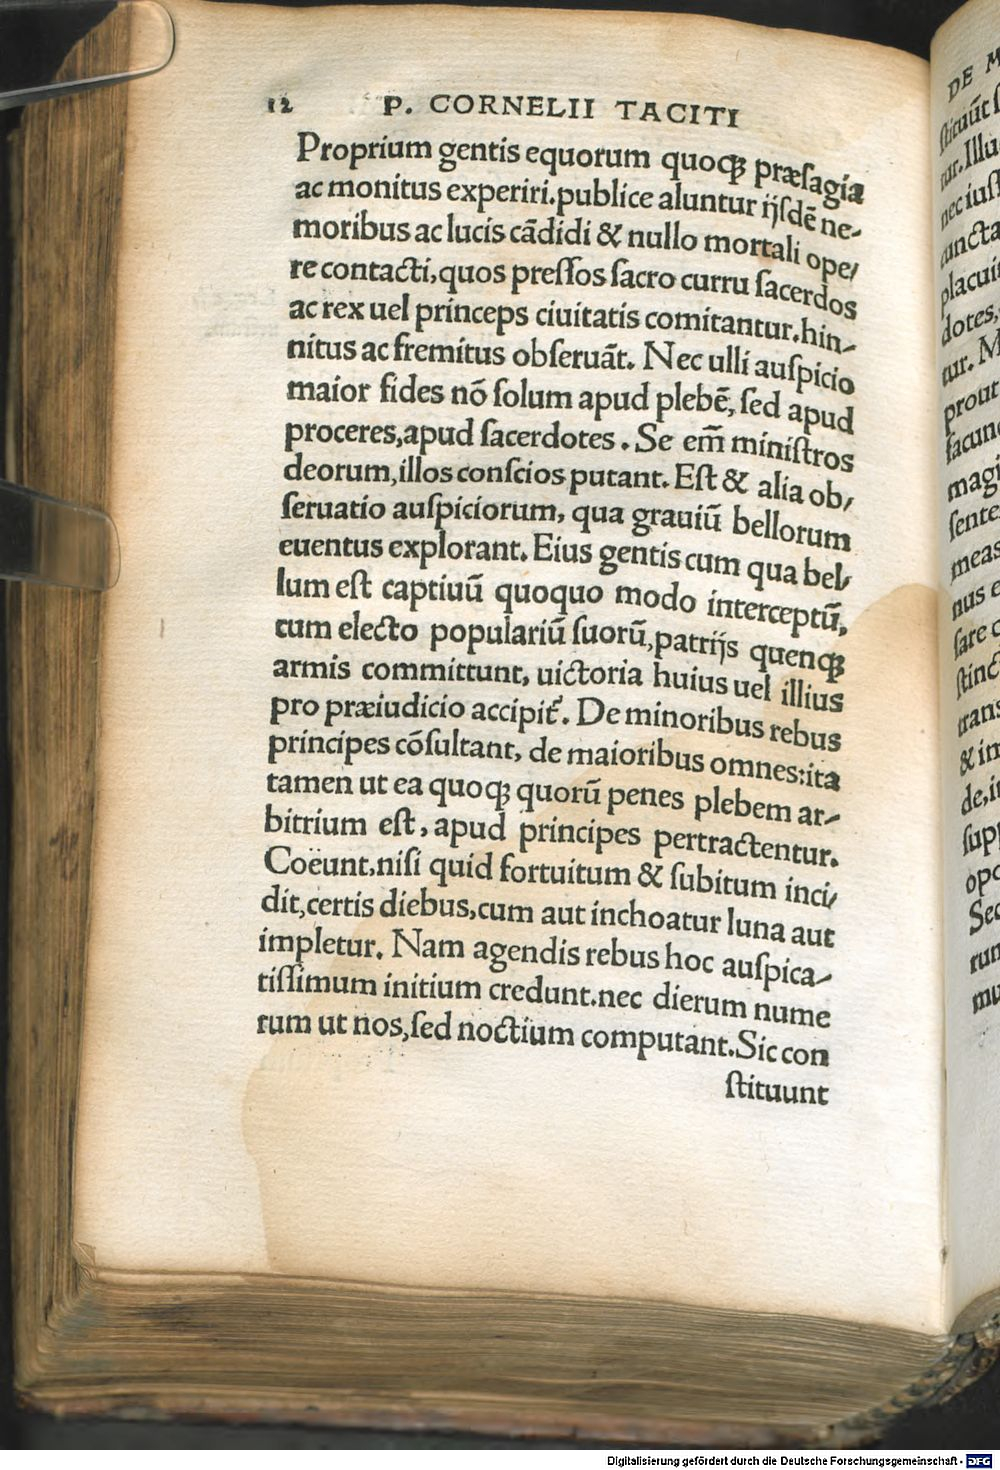 12 P. CORNELII TACITI
Proprium gentis equorum quoqꝫ præſagia
ac monitus experiri.publice aluntur ijſdē ne-
moribus ac lucis cādidi & nullo mortali ope/
re contacti,quos preſſos ſacro curru ſacerdos
ac rex uel princeps ciuitatis comitantur.hin-
nitus ac fremitus obſeruāt. Nec ulli auſpicio
maior fides nō ſolum apud plebē, ſed apud
proceres,apud ſacerdotes. Se em̄ miniſtros
deorum,illos conſcios putant. Eſt & alia ob/
ſeruatio auſpiciorum, qua grauiū bellorum
euentus explorant. Eius gentis cum qua bel/
lum eſt captiuū quoquo modo interceptū,
cum electo populariū ſuorū,patrijs quenqꝫ
armis committunt, uictoria huius uel illius
pro præiudicio accipit᷑. De minoribus rebus
principes cōſultant, de maioribus omnes:ita
tamen ut ea quoqꝫ quorū penes plebem ar-
bitrium eſt, apud principes pertractentur.
Coëunt,niſi quid fortuitum & ſubitum inci/
dit,certis diebus,cum aut inchoatur luna aut
impletur. Nam agendis rebus hoc auſpica-
tiſſimum initium credunt.nec dierum nume
rum ut nos,ſed noctium computant.Sic con
ſtituunt
DE M
ſtituūt
tur.Illu
nec iuſt
cuncta
placuit
dotes,
tur. M
prout
facun
magi
ſente
meas
nus e
ſare
ſtinc
trans
& in
de,i
ſup
opo
Sec
run
mu
Digitalisierung gefördert durch die Deutsche Forschungsgemeinschaft - DFG